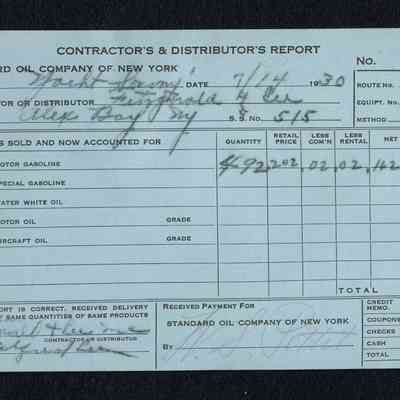 CONTRACTOR'S & DISTRIBUTOR'S REPORT
RD OIL COMPANY OF NEW YORK
No.
Yacht DATE 7/14 1930
ROUTE No.
TOR OR DISTRIBUTOR Fitzgerald & Lee
EQUIPT. No.
Alex Bay NY S. S. No. 515
METHOD
S SOLD AND NOW ACCOUNTED FOR QUANTITY RETAIL PRICE LESS COM'N LESS RENTAL NET
OTOR GASOLINE 492 .202 .02 .02 .162
SPECIAL GASOLINE
ATER WHITE OIL
OTOR OIL GRADE
IRCRAFT OIL GRADE
TOTAL
ORT IS CORRECT, RECEIVED DELIVERY
F SAME QUANTITIES OF SAME PRODUCTS
CONTRACTOR OR DISTRIBUTOR
RECEIVED PAYMENT FOR
STANDARD OIL COMPANY OF NEW YORK
BY
CREDIT MEMO.
COUPONS
CHECKS
CASH
TOTAL